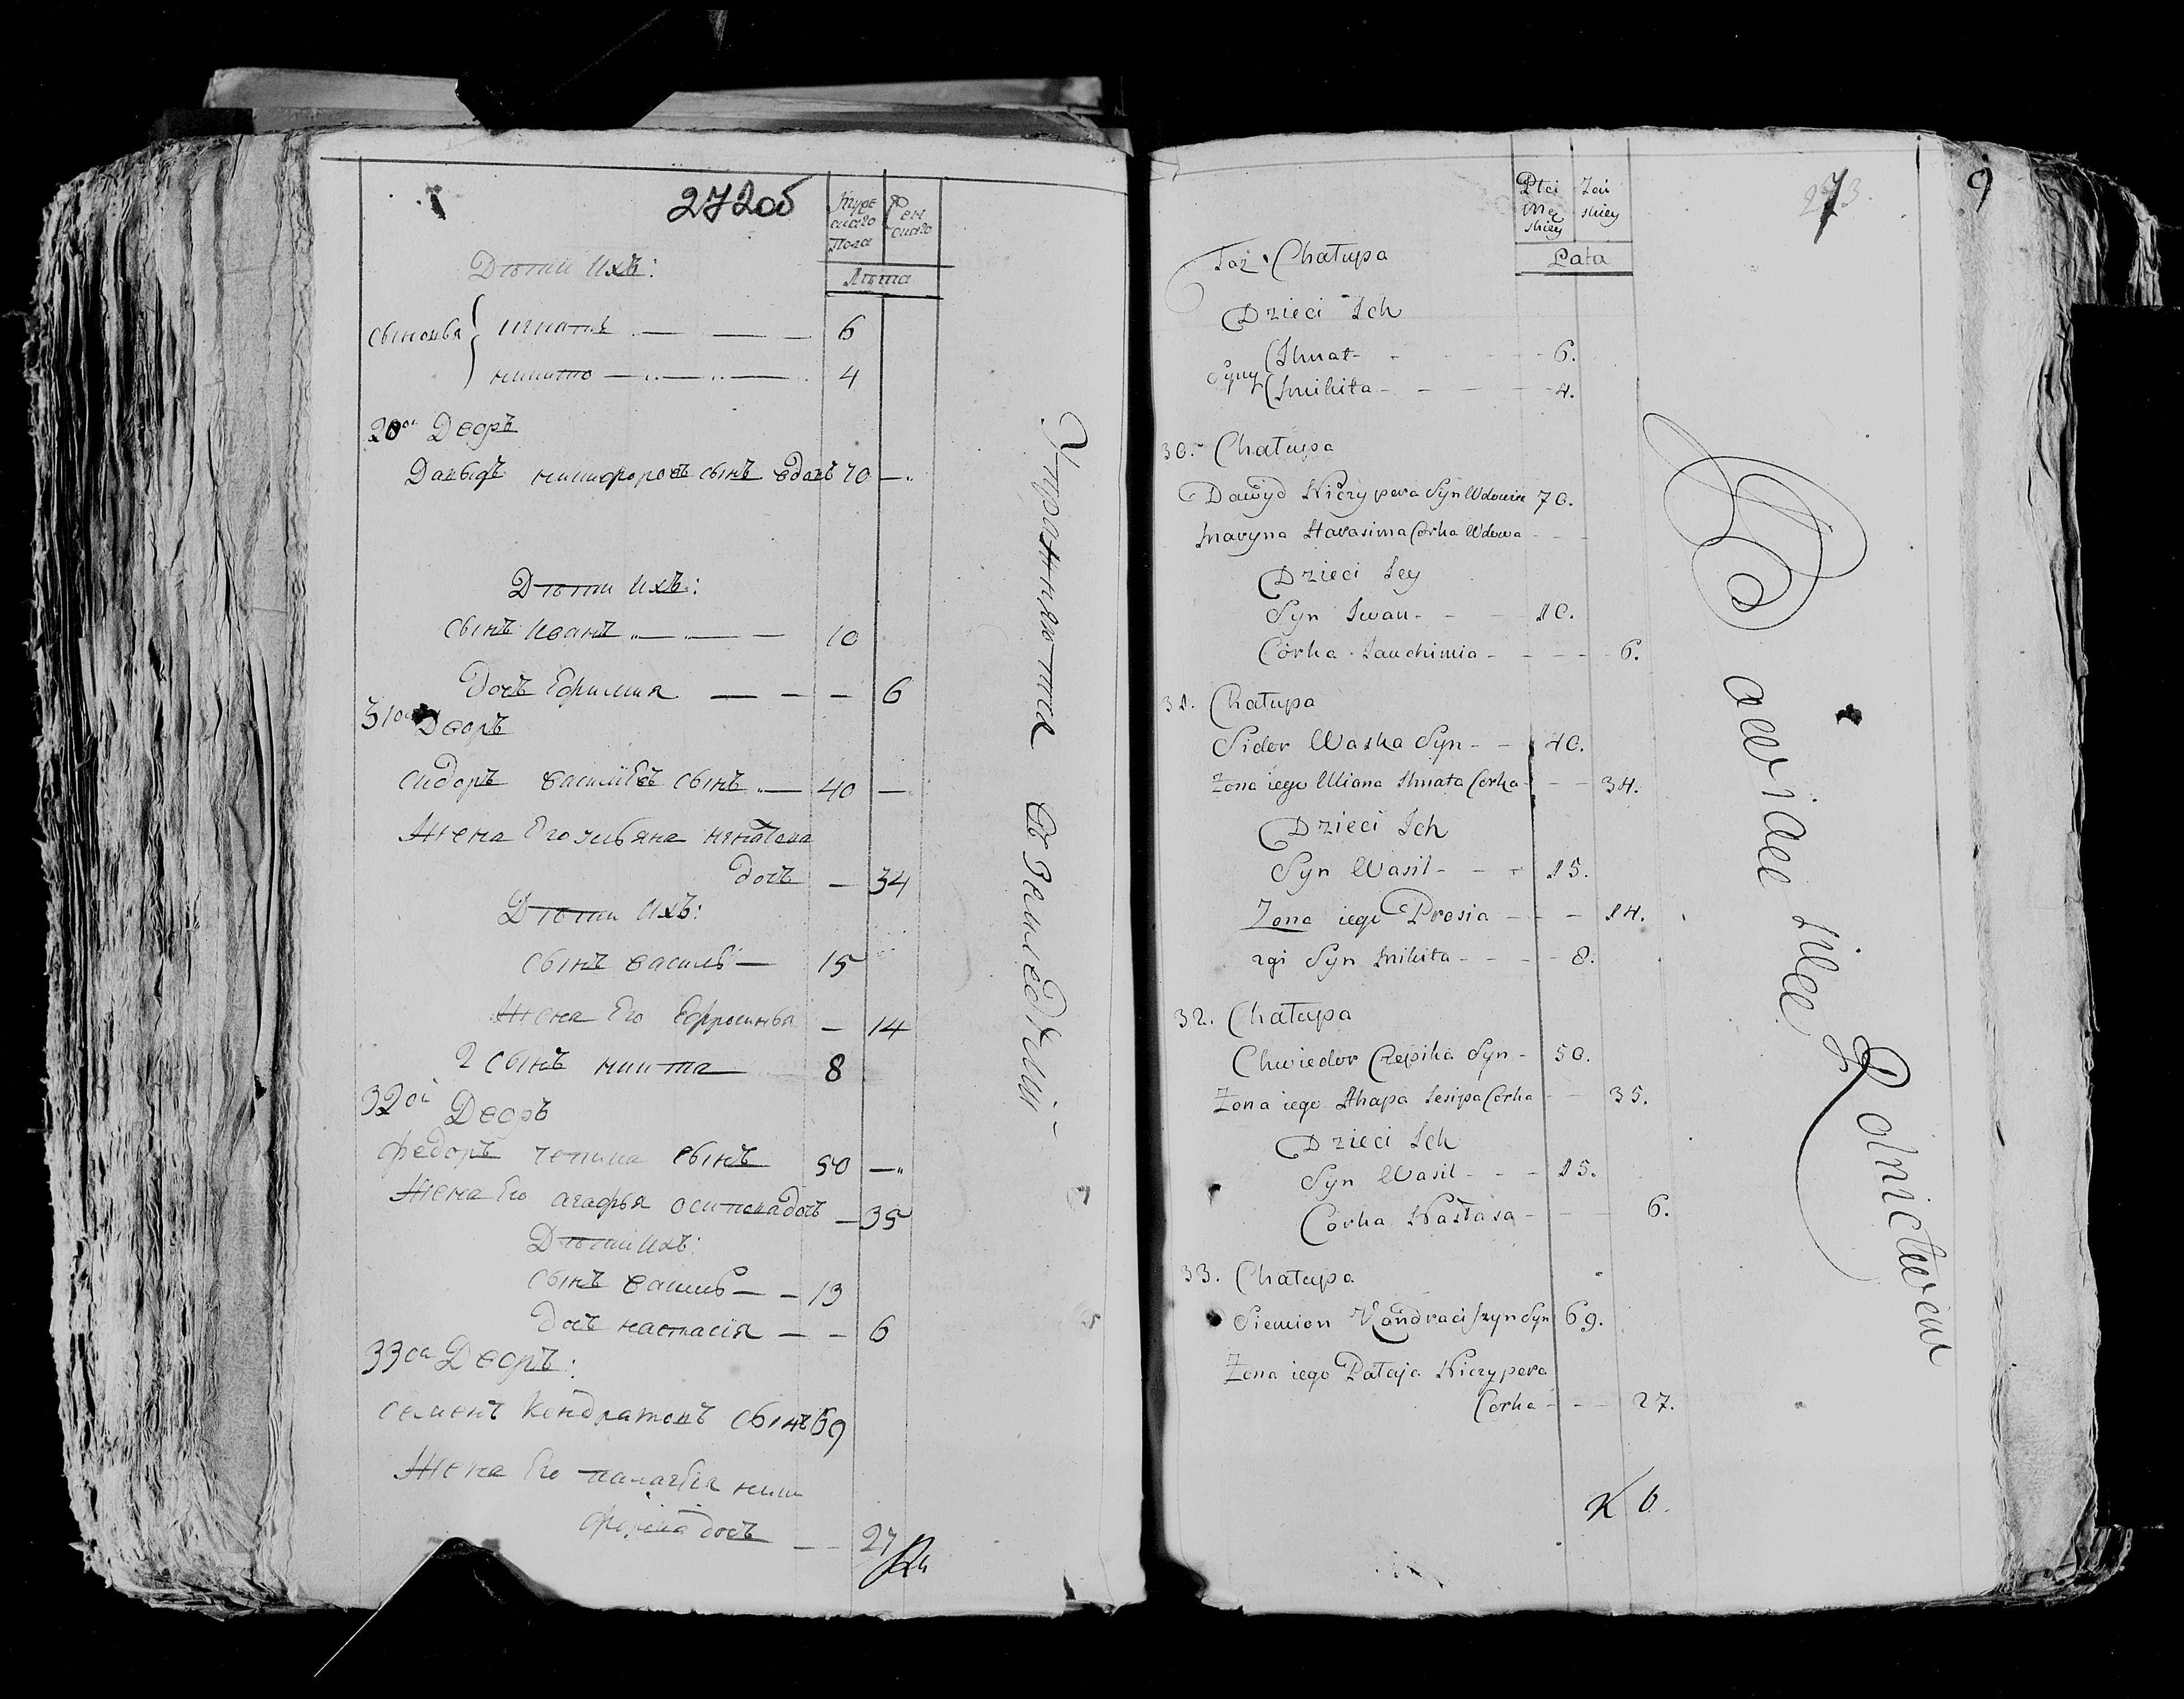 272об
Муже
скаго
Пола
Жен
скаго
Лѣта
Дѣти ихъ:
сыновья { игнатъ 6
никита 4
30ой Дворъ
Давыдъ никифоровъ сынъ вдовъ 70
Дѣти ихъ:
сынъ иванъ 10
дочь Ефимия 6
31ой Дворъ
сидоръ васильевъ сынъ 40
Жена Его ульяна игнатова
дочь 34
Дѣти ихъ:
сынъ василь 15
Жена Его Ефросинья 14
2 сынъ никита 8
32ой Дворъ
федоръ чепика сынъ 50
Жена Его агафья осиповадочь 35
Дѣти ихъ:
сынъ василь 15
дочь настасія 6
33ой Дворъ:
семенъ кондратовъ сынъ 69
Жена Его палагея ники
форова дочь 27
Упражняется в Земледелии
273.
7
9
Płci
Mę
skiey
Żeń
skiey
Lata
Taż Chałupa
Dzieci Ich
Syny (Ihnat 6.
(Mikita 4.
30. Chałupa
Dawyd Niczypora Syn Wdowiec 70.
Maryna Harasima Córka Wdowa
Dzieci Jey
Syn Iwan 10.
Córka Jauchimia 6.
31. Chałupa
Sidor Waska Syn 40.
Żona iego Uliana Ihnata Corka 34.
Dzieci Ich
Syn Wasil 15.
Zona iego Prosia 14.
2gi Syn Mikita 8.
32. Chałupa
Chwiedor Czepika Syn 50.
Żona iego Ahapa Jesipa Córka 35.
Dzieci Ich
Syn Wasil 15.
Córka Nastasa 6.
33. Chałupa
Siemion Kondraciszyn Syn 69.
Żona iego Pałaja Niczypora
Corka 27.
Bawiące się Rolnictwem